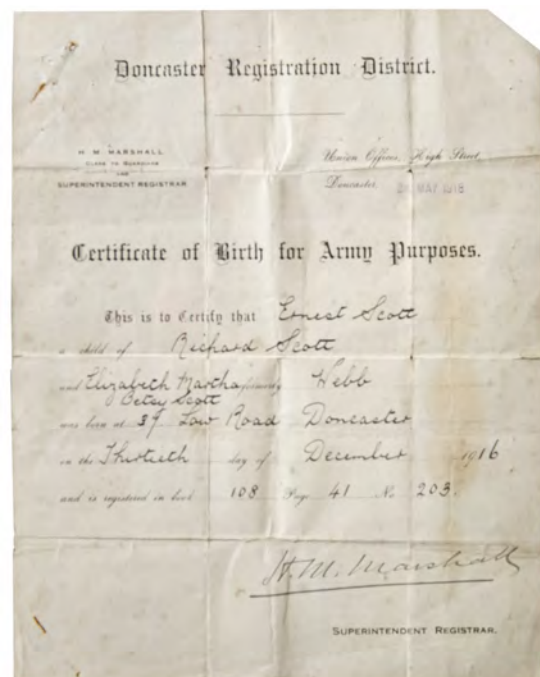 Doncaster Registration District.
H. M. MARSHALL
CLERK TO GUARDIANS
AND
SUPERINTENDENT REGISTRAR
Union Offices, High Street,
Doncaster, MAY 1918
Certificate of Birth for Army Purposes.
This is to Certify that Ernest Scott
a child of Richard Scott
and Elizabeth Martha formerly Webb
Betsy Scott
was born at Low Road Doncaster
on the Thirtieth day of December 1916
and is registered in book 108 Page 41 No 203.
H. M. Marshall
SUPERINTENDENT REGISTRAR.